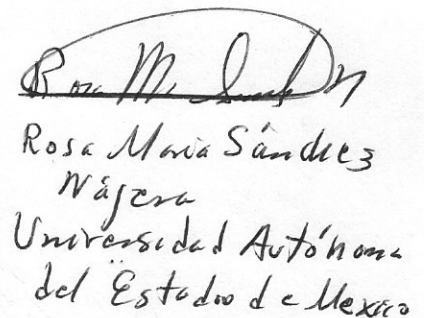 Rosa M. Sánchez N
Rosa María Sánchez
Nájera
Universidad Autónoma
del Estado de México